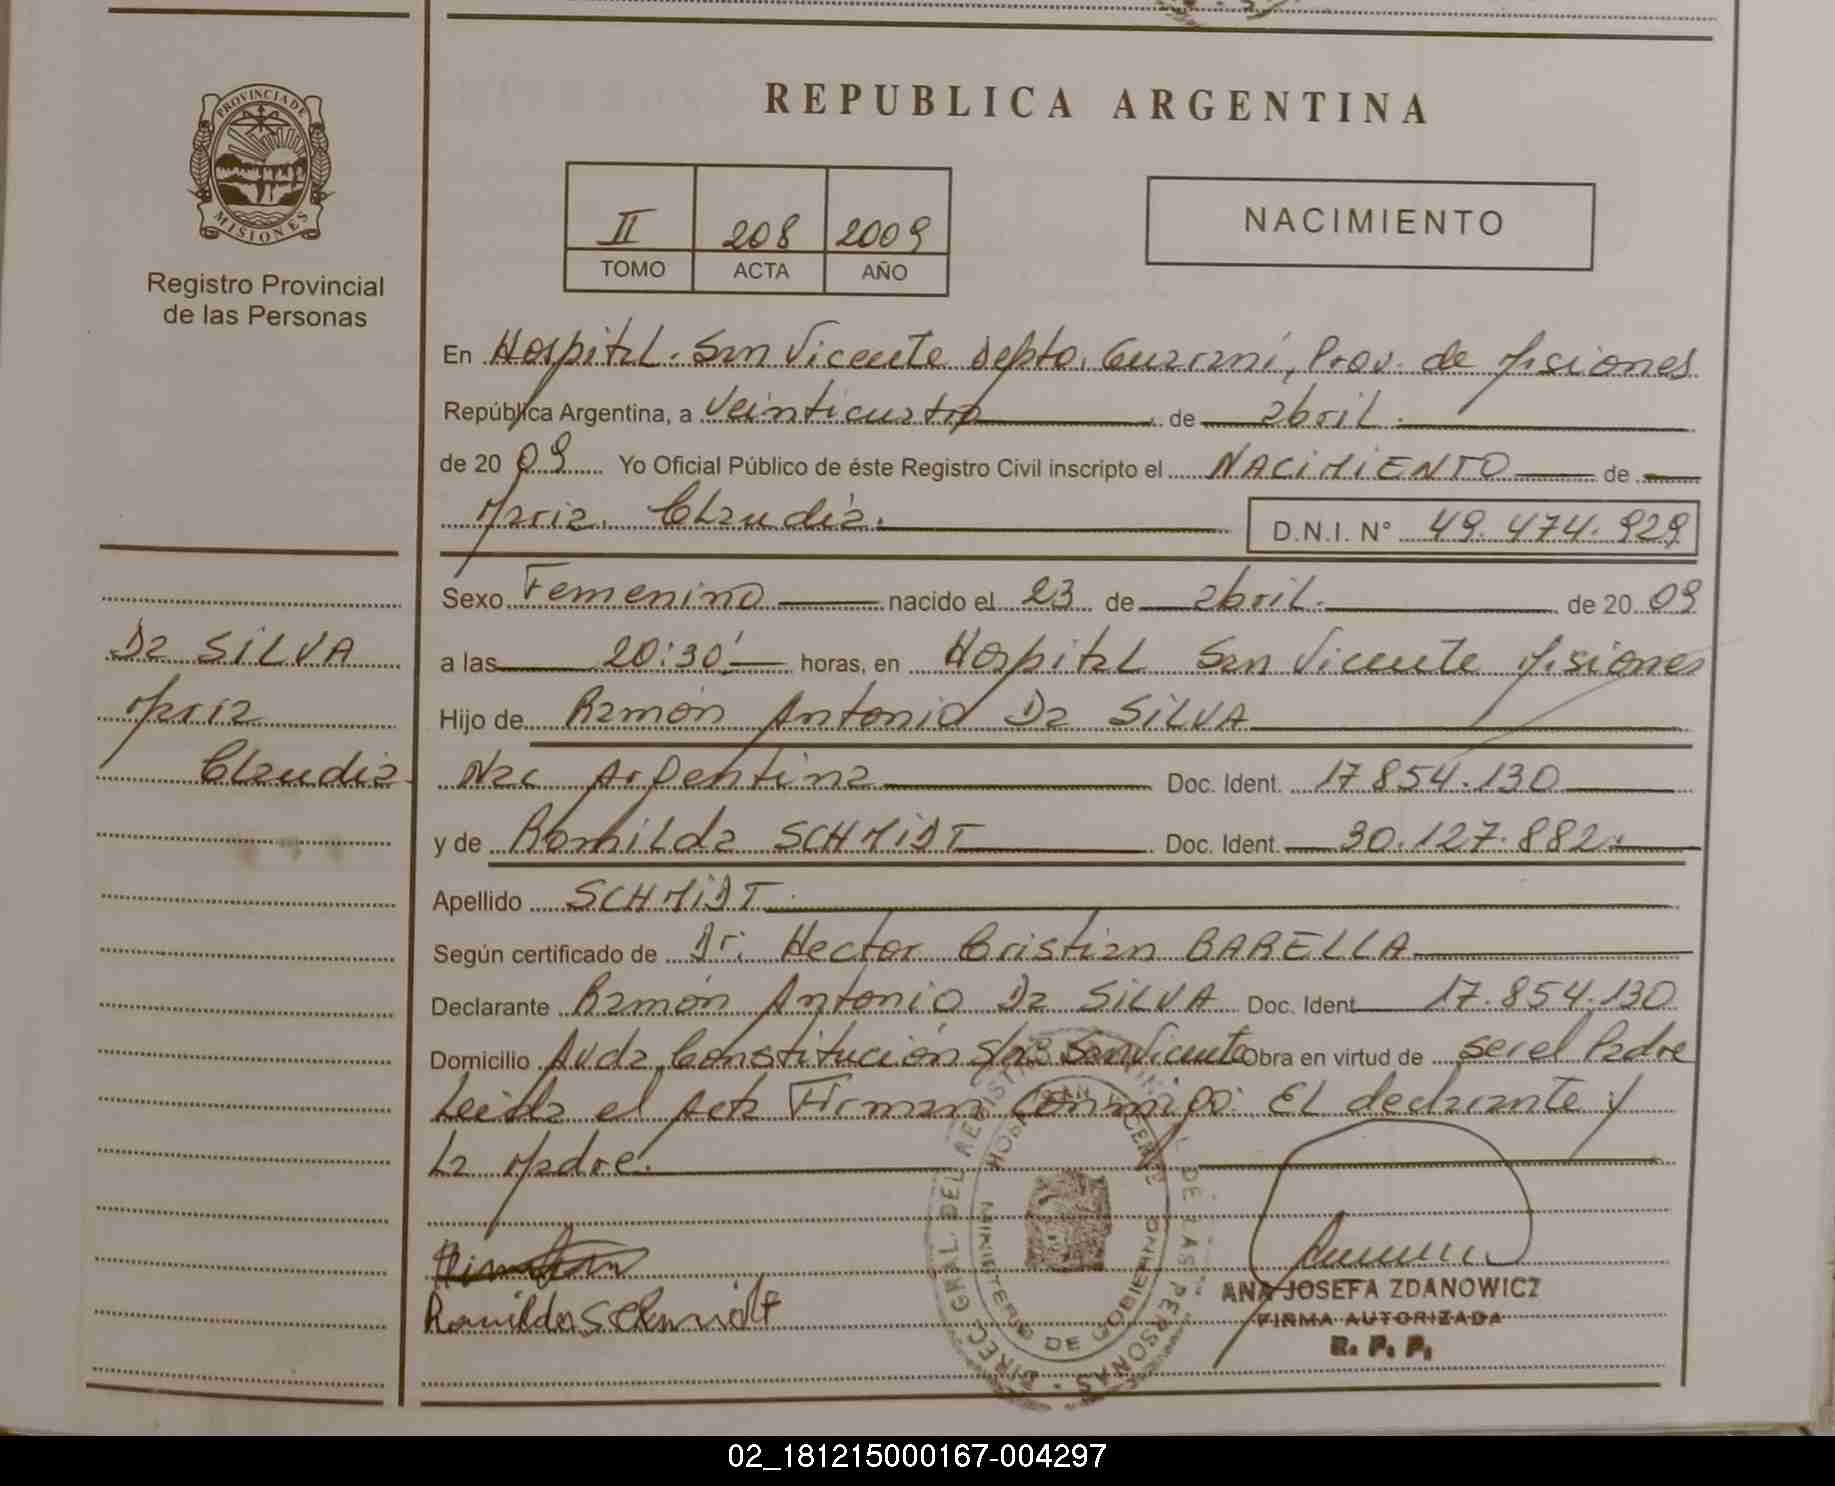 REPUBLICA ARGENTINA
PROVINCIA DE MISIONES
Registro Provincial
de las Personas
II 208 2009
TOMO ACTA AÑO
NACIMIENTO
En Hospital. San Vicente Depto. Guaraní, Prov. de Misiones
República Argentina, a Veinticuatro de abril.
de 20 09 Yo Oficial Público de éste Registro Civil inscripto el NACIMIENTO de
Maria. Claudia. D.N.I. N° 49.474.929
Sexo Femenino nacido el 23 de abril. de 20 09
a las 20:30' horas, en Hospital San Vicente Misiones
Hijo de Ramón Antonio Da SILVA
Nac Argentina Doc. Ident. 17.854.130
y de Romilda SCHMIDT Doc. Ident. 30.127.882.
Apellido SCHMIDT
Según certificado de Dr: Hector Cristian BARELLA
Declarante Ramón Antonio Da SILVA Doc. Ident 17.854.130
Domicilio Avda Constitución S/n° San Vicente Obra en virtud de ser el Padre
Leida el Acta Firman conmigo: El declarante y
La Madre.
Da SILVA
Maria
Claudia
Romilda Schmidt
DIREC. GRAL. DEL REGISTRO DE LAS PERSONAS
HOSP. SAN VICENTE
MINISTERIO DE GOBIERNO
ANA JOSEFA ZDANOWICZ
FIRMA AUTORIZADA
R. P. P.
02_181215000167-004297